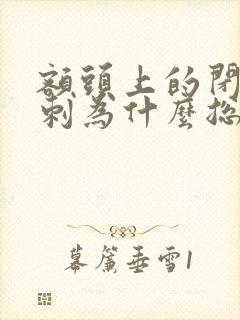 額頭上的閉
刺為什麼總
幕簾垂雪1